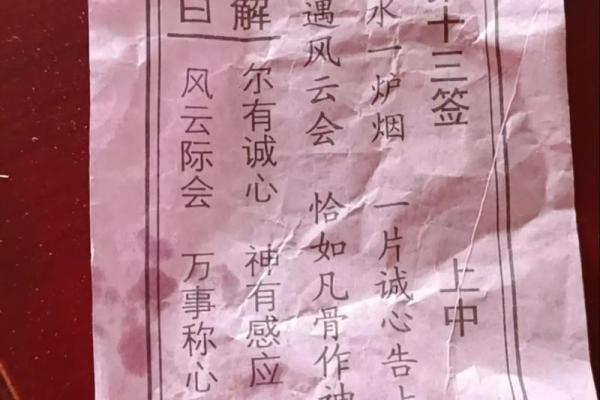 十三签 上中
水一炉烟 一片诚心告
遇风云会 恰如凡骨作神
解
曰
尔有诚心 神有感应
风云际会 万事称心